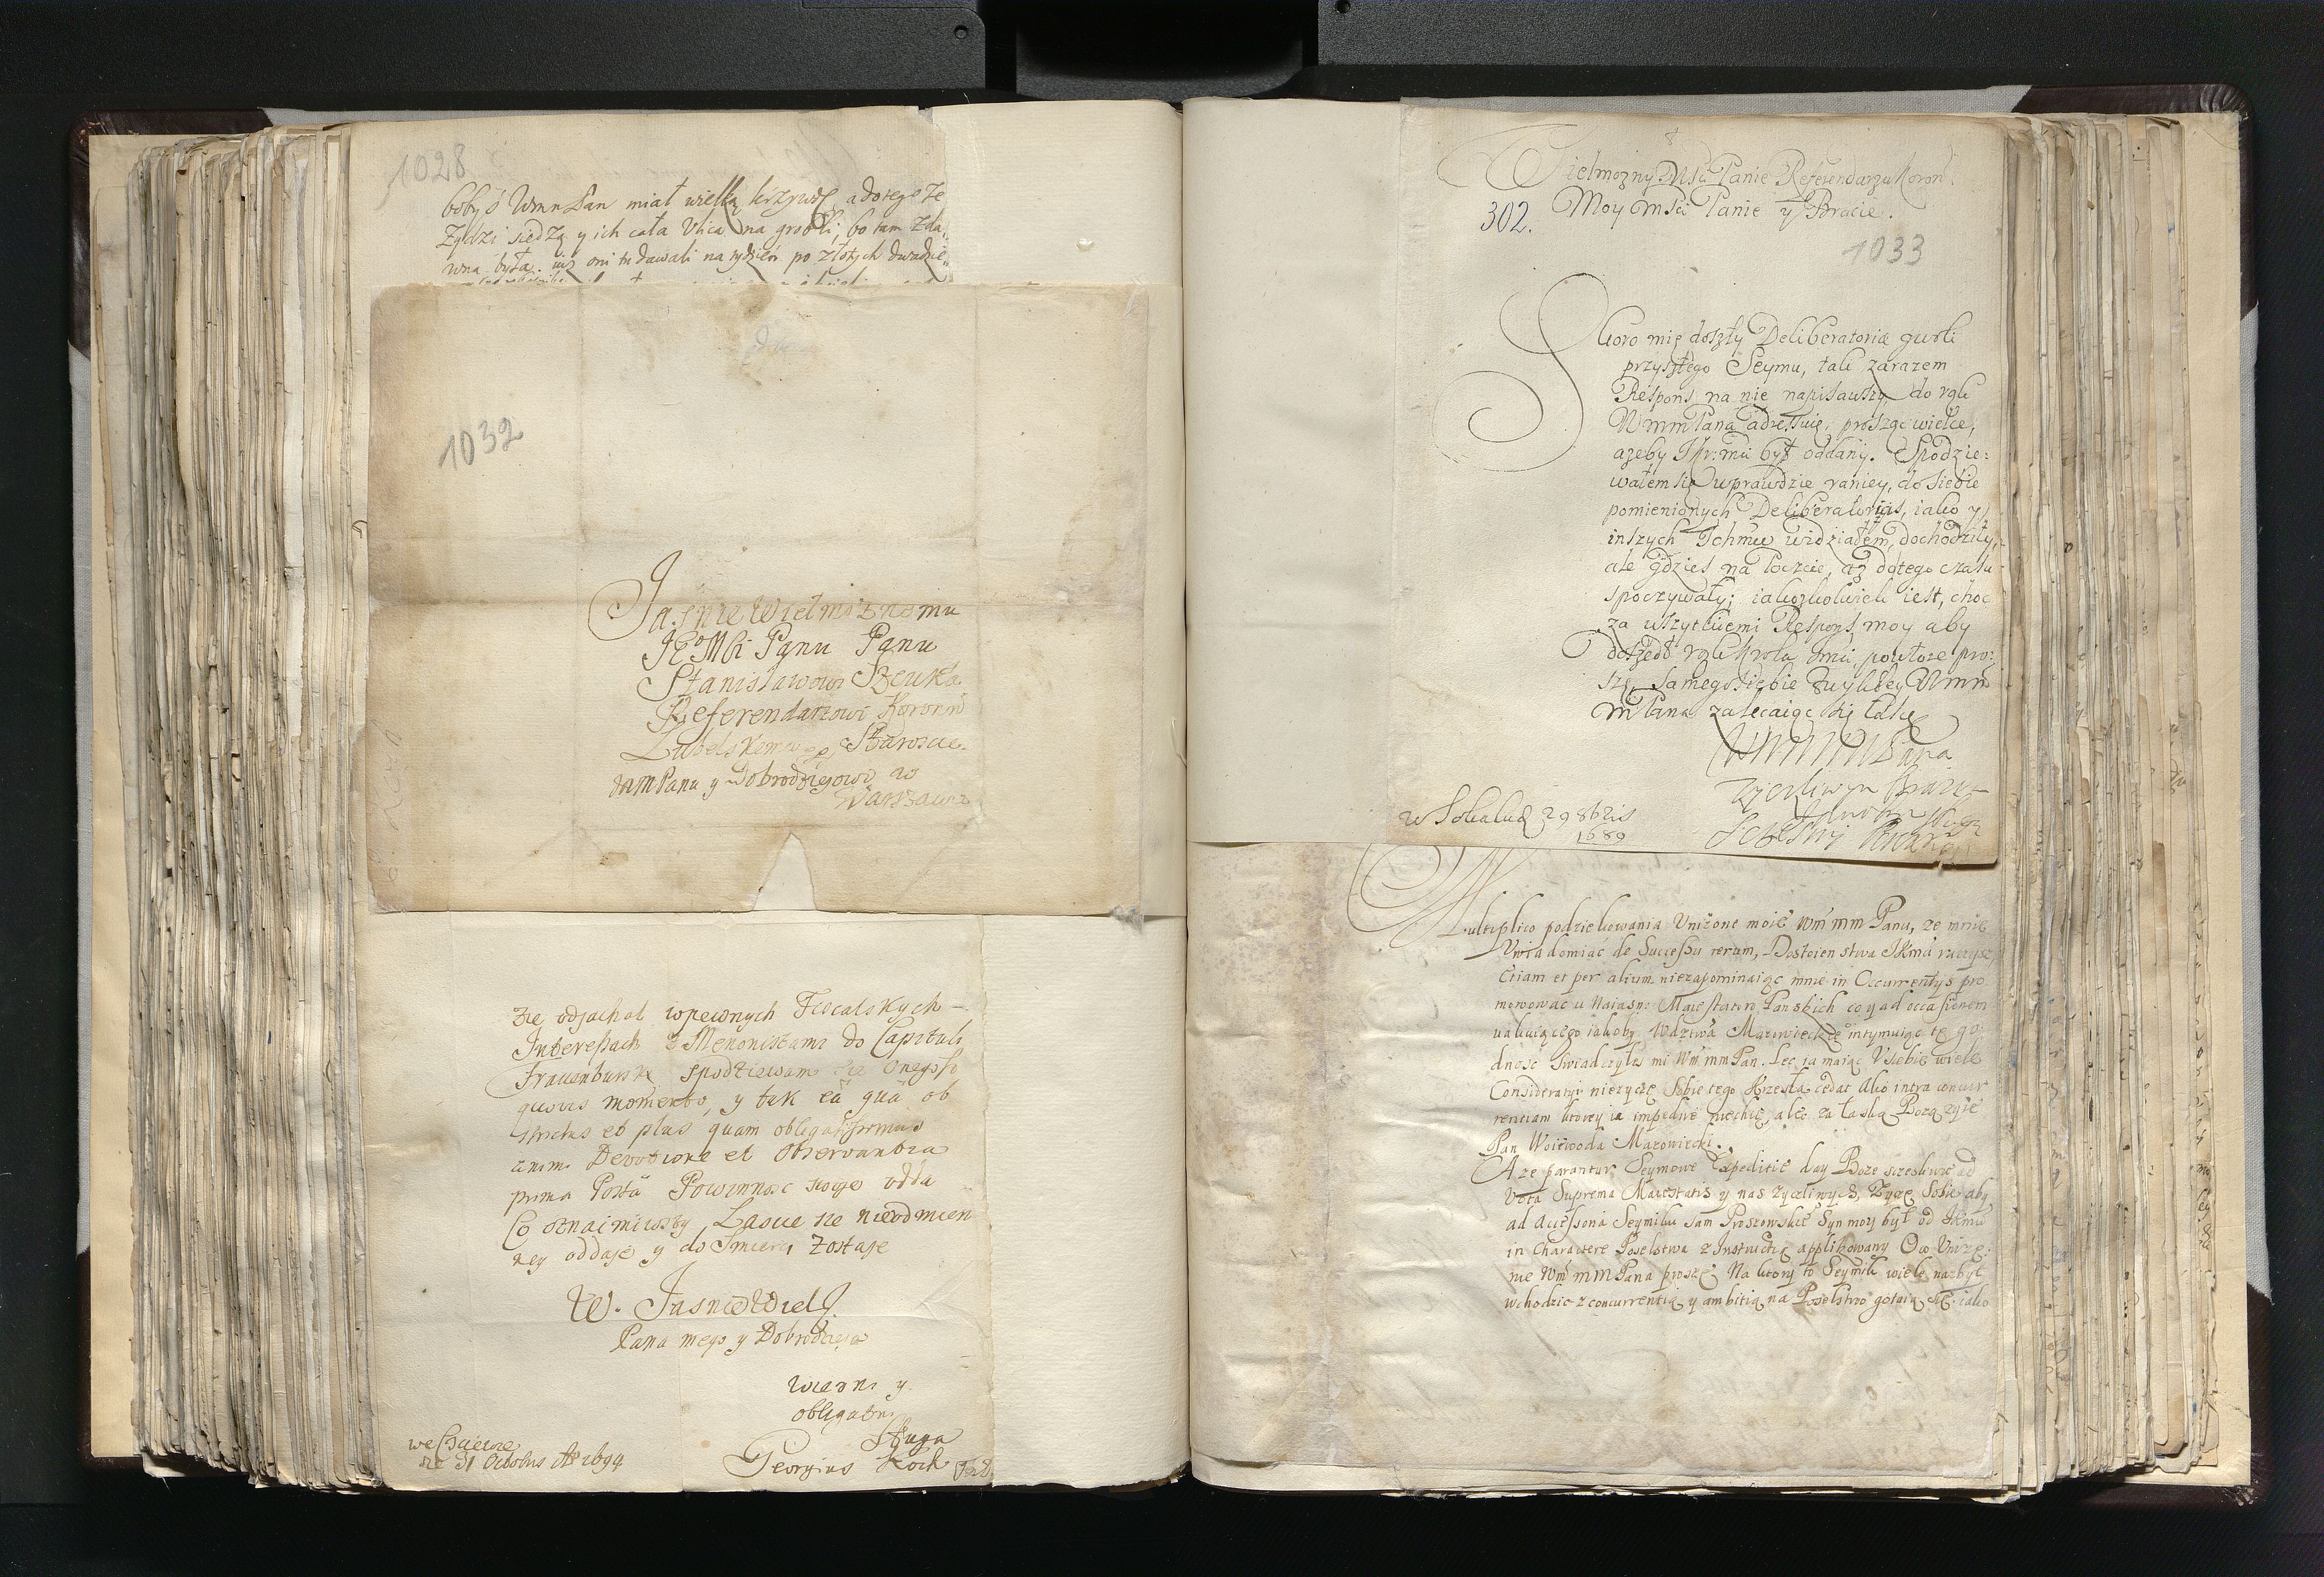 1028
bobyś Wmm Pan miał wielką krzywdę, a dotego że
Żydzi siedzą y ich cała Vlica na grobli, bo tam zda,
wna była. iuż oni tu dawali na tydzień po złotych dwadzie,
1032
Jasnie Wielmożnemu
JE⁰ Mści Panu Panu
Stanisławowi Szczuka
Referendarzowi Koronn
Lubelskemu Staroście
WMMPanu y Dobrodziejowi w
Warszawie
że odjachał w pewnych Fiscalskych
Interessach z Menonistami do Capituli
Frauenbursk spodziewam sie onegosz
quovis momento, y tak eä quä ob
strictus et plus quam obligatissimus
animi Devotione et Observantia
prima Posta Powinnosc swoye odda
Co oznaimiwszy, Lasce sie nieodmien
ney oddaje y do Smierci zostaje
W. Jasnie Wiel
Pana mego y Dobrodzieja
wierni y
obligatni
Sługa
Georgius Koch
we
31 Octobris Aº 1694
Wielmozny Msci Panie Referendarzu Koron.
302. Moy Msci Panie y Bracie.
1033
Skoro mię doszły Deliberatoriæ gwoli
przyszłego Seymu, tak zarazem
Respons na nie napisawszy, do rąk
WmmPana adressuię, proszęc wielce,
azeby JKr: Mci był oddany. Spodzie:
wałem się wprawdzie raniey, do siebie
pomienionych Deliberatoriis, iako y
inszych Ichmciów widziałem, dochodziły,
ale gdzieś na Poczcie, aż dotego czasu
spoczywały; iakożkolwiek iest, choć
za wszytkiemi Respons moy aby
doszedł rąk Krola Jmci, powtore pro:
szę, samego siebie zwykłey Wmm
MPana zalecaiąc się łasce
WMMMPana
życzliwym Bratem
Sługą
w Sokalu 29 8bris
1689
Multiplico podziekowania Vniżone moie Wm̃ mm Panu, ze mnie
Vwiadomiać de Successu rerum, Dostoienstwa JKmci raczysz
Etiam et per alium niezapominaiąc mnie in Occurrentys pro
mowować u Naiasn: Maiestatow Panskich co y ad occasionem
vakuiącego iakoby Wdztwa Mazowieckie intymuiąc tę go
dnosc swiadczyłes mi Wm̃ mm Pan. Lec ja maiąc Vsiebie wiele
Consideratyi nieżyczę sobie tego Krzesła cedat Ako intra concur
rentiam ktorey ia impedire niechcę, ale za łaską Bozą zyie
Pan Woiewoda Mazowiecki.
A ze parantur Seymowe Expeditie day Boze szczesliwie ad
Vota Suprema Maiestatis y nas zyczliwych, Zyczę sobie aby
ad Accessoria Seymiku sam Proszowskie Syn moy był od JKmci
in Charactere Poselstwa z Instructią applikowany Oco Vniże:
nie Wm̃ mm Pana proszę. Na ktory to Seymik wiele nazbyt
wchodzic z concurrentią y ambitią na Poselstwo gotuią się iako